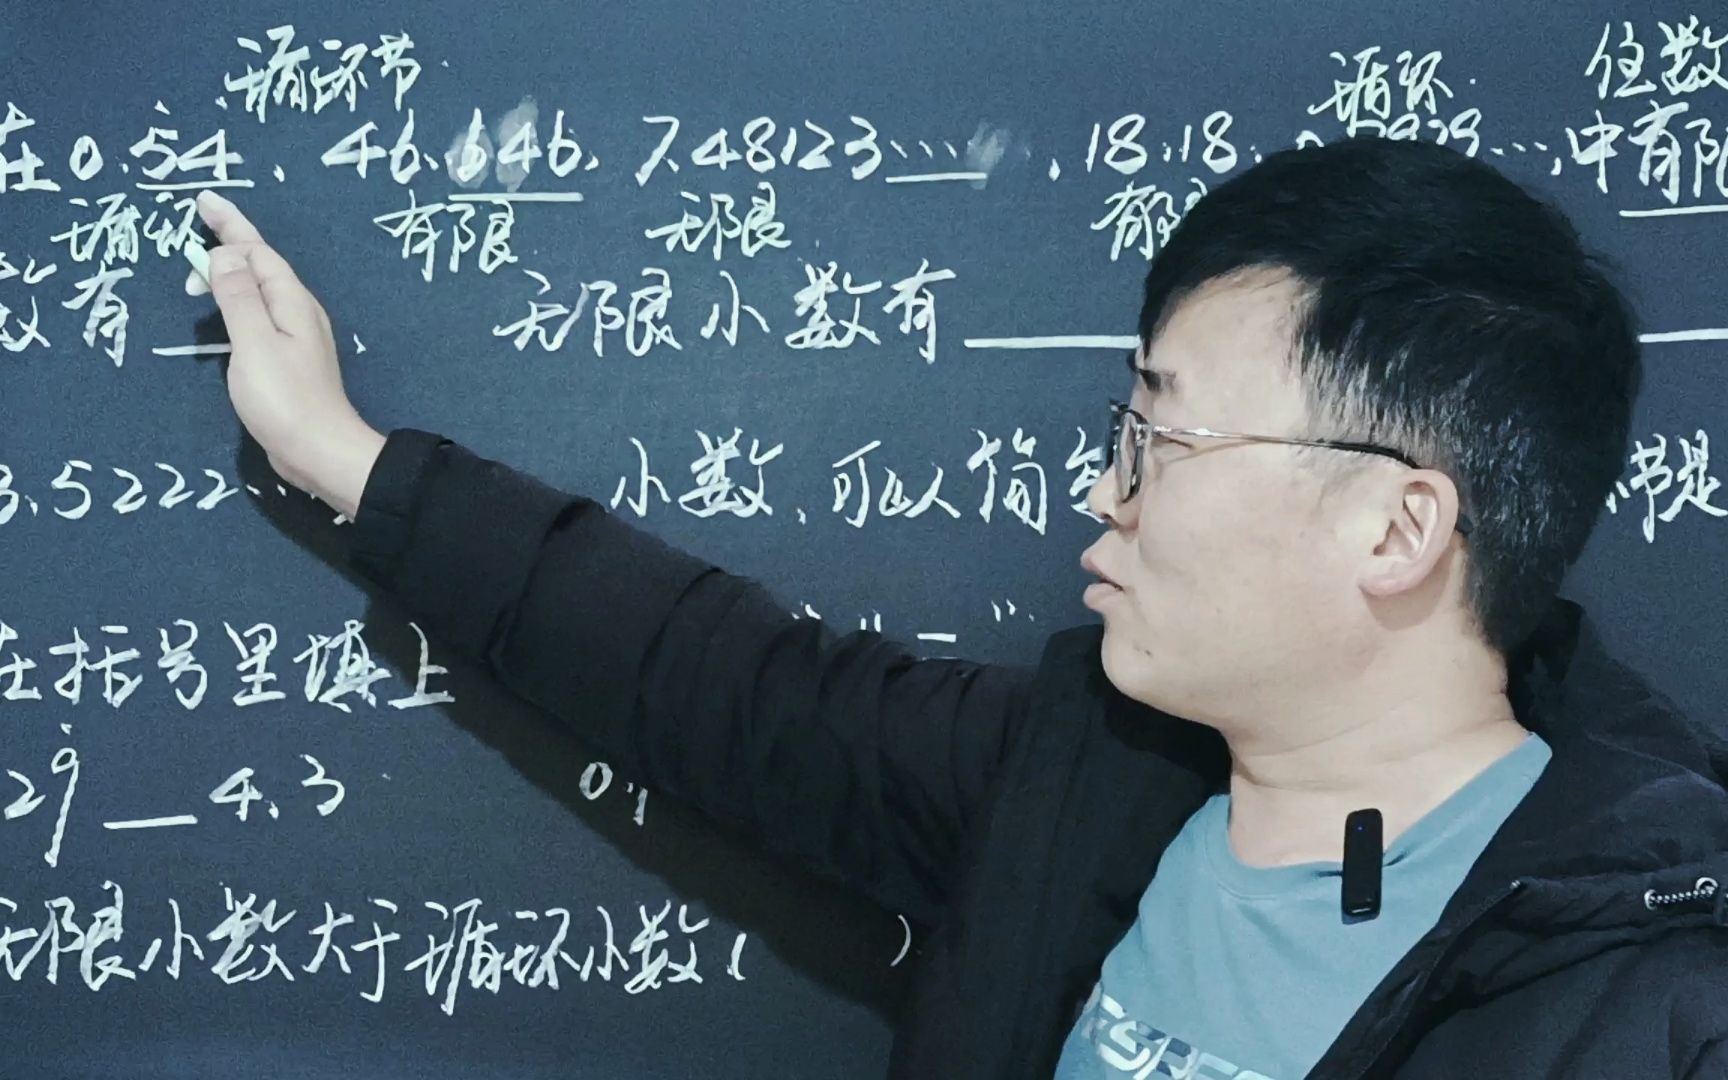 循环节 循环 位数
在0.5̇4̇、46.646、7.48123……、18.18、 2929…,中有限
循环 有限 无限 有限
数有 、 无限小数有
3.5222… 小数,可以简 节是
在括号里填上
29̇ 4.3 0.1
无限小数大于循环小数( )